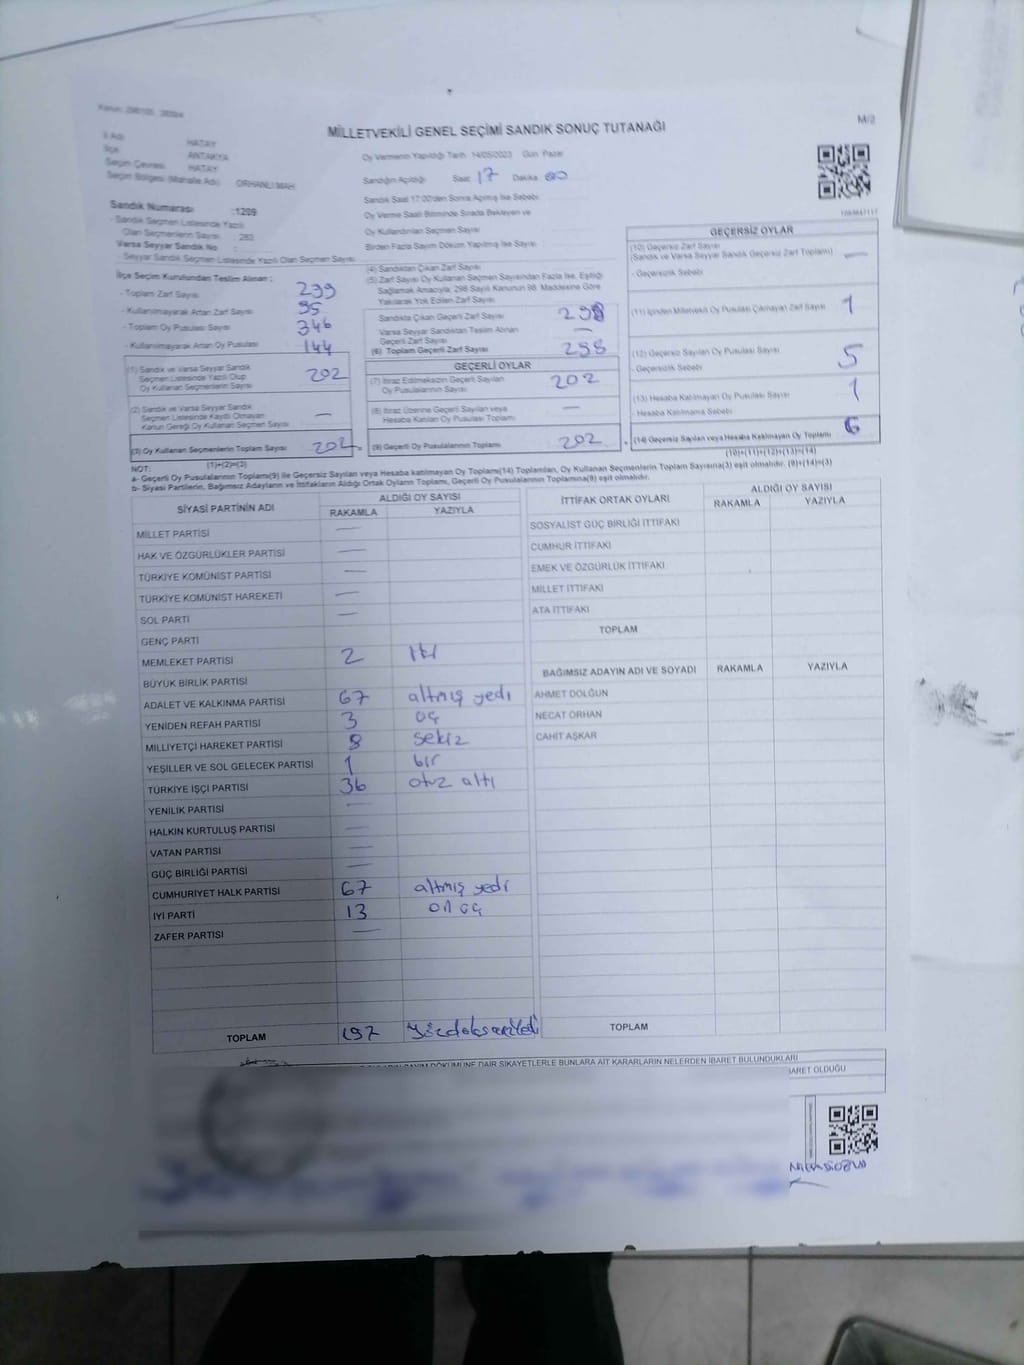 MİLLETVEKİLİ GENEL SEÇİMİ SANDIK SONUÇ TUTANAĞI
M/2
İl Adı HATAY
İlçe ANTAKYA
Seçim Çevresi HATAY
Seçim Bölgesi (Mahalle Adı) ORHANLI MAH
Oy Vermenin Yapıldığı Tarih 14/05/2023 Gün Pazar
Sandığın Açıldığı Saat 17 Dakika 00
Sandık Saat 17:00'den Sonra Açılmış İse Sebebi
Oy Verme Saati Bitiminde Sırada Bekleyen ve
Oy Kullandırılan Seçmen Sayısı
Birden Fazla Sayım Döküm Yapılmış İse Sayısı
Sandık Numarası :1209
- Sandık Seçmen Listesinde Yazılı
Olan Seçmenlerin Sayısı : 283
Varsa Seyyar Sandık No :
- Seyyar Sandık Seçmen Listesinde Yazılı Olan Seçmen Sayısı
İlçe Seçim Kurulundan Teslim Alınan :
- Toplam Zarf Sayısı 299
- Kullanılmayarak Artan Zarf Sayısı 95
- Toplam Oy Pusulası Sayısı 346
- Kullanılmayarak Artan Oy Pusulası 144
(1) Sandık ve Varsa Seyyar Sandık
Seçmen Listesinde Yazılı Olup
Oy Kullanan Seçmenlerin Sayısı 202
(2) Sandık ve Varsa Seyyar Sandık
Seçmen Listesinde Kaydı Olmayan
Kanun Gereği Oy Kullanan Seçmen Sayısı —
(3) Oy Kullanan Seçmenlerin Toplam Sayısı 202
(1)+(2)=(3)
(4) Sandıktan Çıkan Zarf Sayısı
(5) Zarf Sayısı Oy Kullanan Seçmen Sayısından Fazla İse, Eşitliği
Sağlamak Amacıyla, 298 Sayılı Kanunun 98. Maddesine Göre
Yakılarak Yok Edilen Zarf Sayısı
Sandıkta Çıkan Geçerli Zarf Sayısı 298
Varsa Seyyar Sandıktan Teslim Alınan
Geçerli Zarf Sayısı —
(6) Toplam Geçerli Zarf Sayısı 298
GEÇERLİ OYLAR
(7) İtiraz Edilmeksizin Geçerli Sayılan
Oy Pusulalarının Sayısı 202
(8) İtiraz Üzerine Geçerli Sayılan veya
Hesaba Katılan Oy Pusulası Toplamı —
(9) Geçerli Oy Pusulalarının Toplamı 202
GEÇERSİZ OYLAR
(10) Geçersiz Zarf Sayısı
(Sandık ve Varsa Seyyar Sandık Geçersiz Zarf Toplamı) —
- Geçersizlik Sebebi
(11) İçinden Milletvekili Oy Pusulası Çıkmayan Zarf Sayısı 1
(12) Geçersiz Sayılan Oy Pusulası Sayısı 5
- Geçersizlik Sebebi
(13) Hesaba Katılmayan Oy Pusulası Sayısı 1
- Hesaba Katılmama Sebebi
(14) Geçersiz Sayılan veya Hesaba Katılmayan Oy Toplamı 6
(10)+(11)+(12)+(13)=(14)
NOT:
a- Geçerli Oy Pusulalarının Toplamı(9) ile Geçersiz Sayılan veya Hesaba katılmayan Oy Toplamı(14) Toplamları, Oy Kullanan Seçmenlerin Toplam Sayısına(3) eşit olmalıdır. (9)+(14)=(3)
b- Siyasi Partilerin, Bağımsız Adayların ve İttifakların Aldığı Ortak Oyların Toplamı, Geçerli Oy Pusulalarının Toplamına(9) eşit olmalıdır.
SİYASİ PARTİNİN ADI ALDIĞI OY SAYISI
RAKAMLA YAZIYLA
MİLLET PARTİSİ —
HAK VE ÖZGÜRLÜKLER PARTİSİ —
TÜRKİYE KOMÜNİST PARTİSİ —
TÜRKİYE KOMÜNİST HAREKETİ —
SOL PARTİ —
GENÇ PARTİ
MEMLEKET PARTİSİ 2 iki
BÜYÜK BİRLİK PARTİSİ
ADALET VE KALKINMA PARTİSİ 67 altmış yedi
YENİDEN REFAH PARTİSİ 3 üç
MİLLİYETÇİ HAREKET PARTİSİ 8 sekiz
YEŞİLLER VE SOL GELECEK PARTİSİ 1 bir
TÜRKİYE İŞÇİ PARTİSİ 36 otuz altı
YENİLİK PARTİSİ —
HALKIN KURTULUŞ PARTİSİ —
VATAN PARTİSİ —
GÜÇ BİRLİĞİ PARTİSİ —
CUMHURİYET HALK PARTİSİ 67 altmış yedi
İYİ PARTİ 13 on üç
ZAFER PARTİSİ —
TOPLAM 197 yüzdoksanyedi
İTTİFAK ORTAK OYLARI ALDIĞI OY SAYISI
RAKAMLA YAZIYLA
SOSYALİST GÜÇ BİRLİĞİ İTTİFAKI
CUMHUR İTTİFAKI
EMEK VE ÖZGÜRLÜK İTTİFAKI
MİLLET İTTİFAKI
ATA İTTİFAKI
TOPLAM
BAĞIMSIZ ADAYIN ADI VE SOYADI RAKAMLA YAZIYLA
AHMET DOLĞUN
NECAT ORHAN
CAHİT AŞKAR
TOPLAM
DÖKÜMÜNE DAİR ŞİKAYETLERLE BUNLARA AİT KARARLARIN NELERDEN İBARET BULUNDUKLARI
BARET OLDUĞU